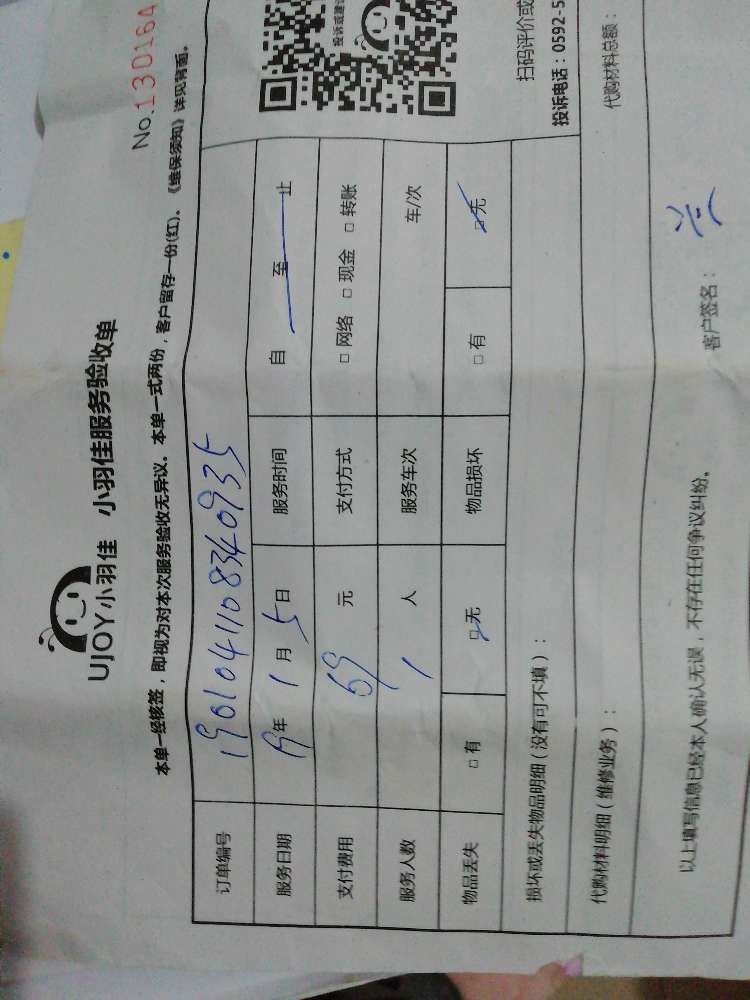 No.130164
UJOY小羽佳 小羽佳服务验收单
本单一经核签，即视为对本次服务验收无异议。本单一式两份，客户留存一份(红)。《维保须知》详见背面。
订单编号 1901041108340935
服务日期 19年 1月 5日 服务时间 自 至 止
支付费用 69 元 支付方式 □ 网络 □ 现金 □ 转账
服务人数 1 人 服务车次 车/次
物品丢失 □ 有 □ 无 物品损坏 □ 有 □ 无
损坏或丢失物品明细（没有可不填）：
代购材料明细（维修业务）： 代购材料总额：
以上填写信息已经本人确认无误，不存在任何争议纠纷。
客户签名：
投诉或建议
扫码评价或
投诉电话：0592-5